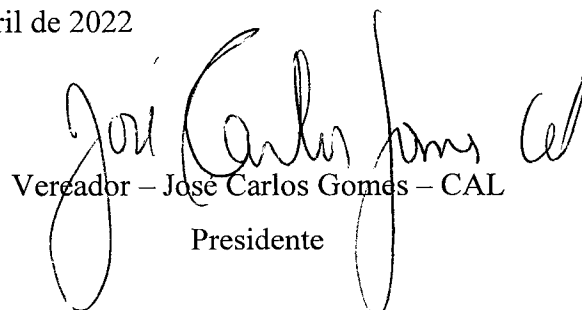 ril de 2022
José Carlos Gomes Cal
Vereador – José Carlos Gomes – CAL
Presidente